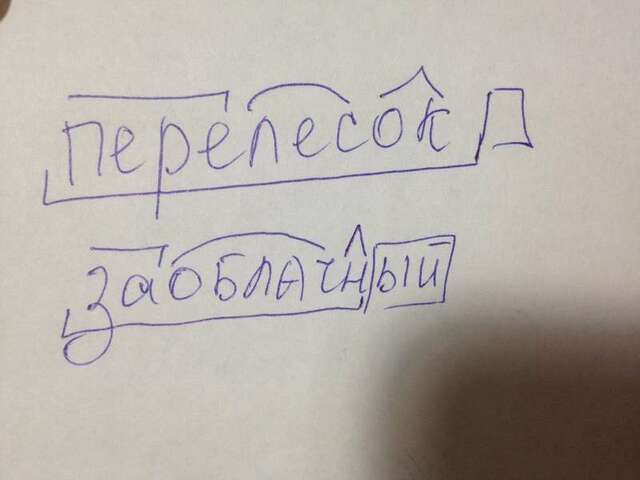 перелесок
заоблачный